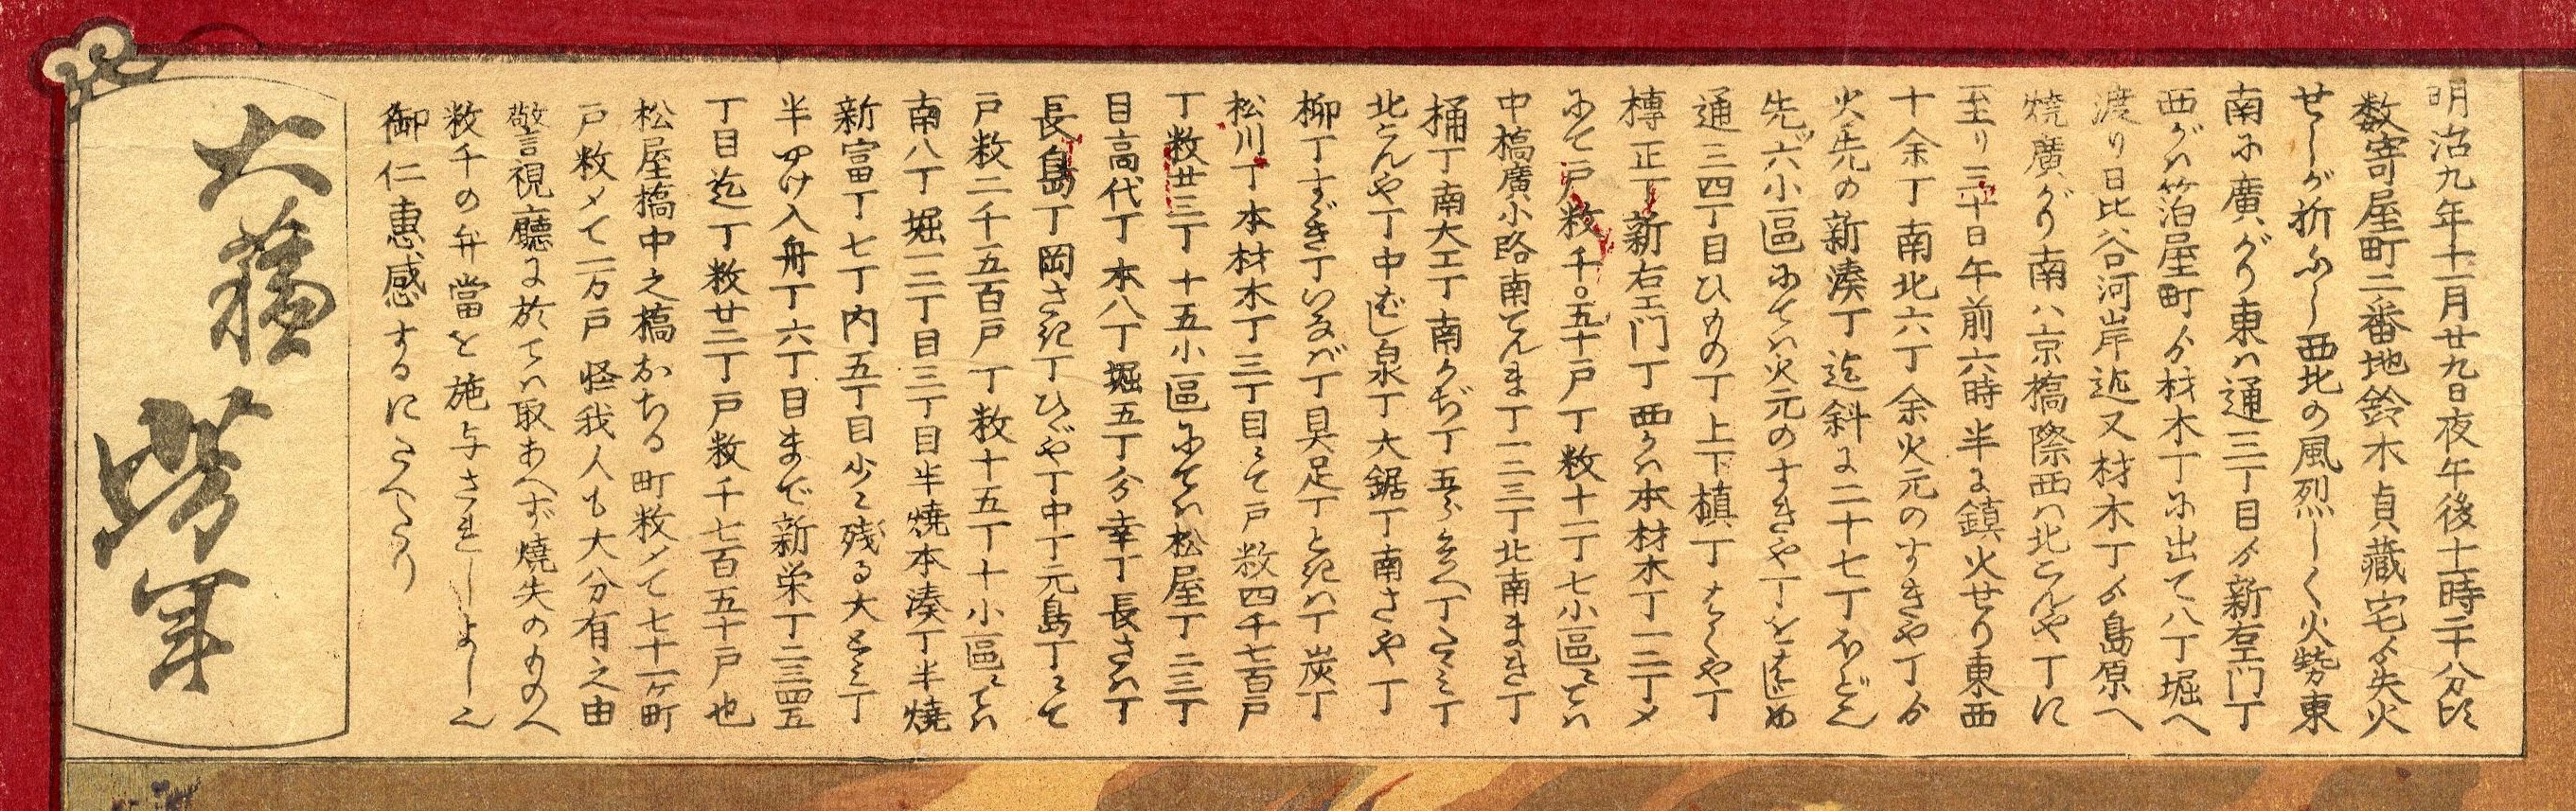 明治九年十一月廿九日夜午後十一時二十分頃
数寄屋町二番地鈴木貞蔵宅ゟ失火
せしが折ふし西北の風烈しく火勢東
南に廣がり東ハ通三丁目ゟ新右エ門丁
西がハ箔屋町ゟ材木丁に出て八丁堀へ
渡り日比谷河岸迄又材木丁ゟ島原へ
焼廣がり南ハ京橋際西ハ北こんや丁に
至り三十日午前六時半に鎮火せり東西
十余丁南北六丁余火元のすきや丁ゟ
火先の新湊丁迄斜に二十七丁ほどん
先ヅ六小區にてハ火元のすきや丁をはじめ
通三四丁目ひもの丁上下槙丁はくや丁
榑正丁新右エ門丁西かハ本材木丁一二丁〆
にて戸数千〇五十戸丁数十一丁七小區にてハ
中橋廣小路南てんま丁一二三丁北南まき丁
桶丁南大工丁南かぢ丁五ろべへ丁たゝみ丁
北こんや丁中ばし泉丁大鋸丁南さや丁
柳丁すゞき丁いなば丁具足丁ときハ丁炭丁
松川丁本材木丁三丁目にて戸数四千七百戸
丁数廿三丁十五小區にてハ松屋丁二三丁
目高代丁本八丁堀五丁分幸丁長さハ丁
長島丁岡さき丁ひゞや丁中丁元島丁にて
戸数二千五百戸丁数十五丁十小區にてハ
南八丁堀一二丁目三丁目半焼本湊丁半焼
新富丁七丁内五丁目少々残る大とみ丁
半やけ入舟丁六丁目まで新栄丁二三四五
丁目迄丁数廿二丁戸数千七百五十戸也
松屋橋中之橋おちる町数〆て七十一ヶ町
戸数〆て一万戸怪我人も大分有之由
警視廳に於てハ取あへず焼失のものへ
数千の弁當を施与されしよし之
御仁恵感ずるにたへたり
大蘇
芳年